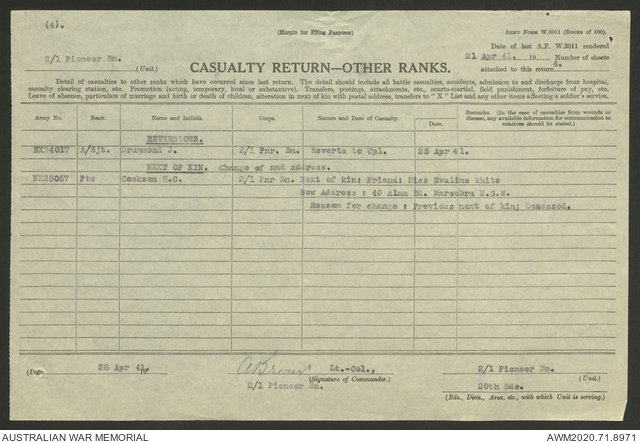 (4).
(Margin for Filing Purposes)
ARMY FORM W.3011 (BOOKS OF 100).
Date of last A.F. W.3011 rendered
2/1 Pioneer Bn. (Unit.)
21 Apr 41. 19 Number of sheets
attached to this return 4.
CASUALTY RETURN—OTHER RANKS.
Detail of casualties to other ranks which have occurred since last return. The detail should include all battle casualties, accidents, admission to and discharge from hospital,
casualty clearing station, etc. Promotion (acting, temporary, local or substantive). Transfers, postings, attachments, etc., courts-martial, field punishment, forfeiture of pay, etc.
Leave of absence, particulars of marriage and birth or death of children, alteration in next of kin with postal address, transfers to "X" List and any other items affecting a soldier's service.
Army No. Rank. Name and Initials. Corps. Nature and Date of Casualty. Date. Remarks. (In the case of casualties from wounds or disease, any available information for communication to relatives should be stated.)
REVERSIONS.
NX34017 A/Sjt. Drummond J. 2/1 Pnr. Bn. Reverts to Cpl. 25 Apr 41.
NEXT OF KIN. Change of and address.
NX25057 Pte Cookson H.C. 2/1 Pnr Bn. Next of kin; Friend; Miss Evaline White
New Address : 40 Alma Rd. Maroubra N.S.W.
Reason for change : Previous next of kin; Deceased.
(Date) 28 Apr 41. 19 ABrown Lt-Col., 2/1 Pioneer
(Signature of Commander.) (Unit.)
2/1 Pioneer Bn. 20th Bde.
(Bde., Divn., Area, etc., with which Unit is serving.)
AUSTRALIAN WAR MEMORIAL
AWM2020.71.8971